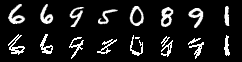 6 6 9 5 0 8 9 1
6 6 9 5 0 8 9 1